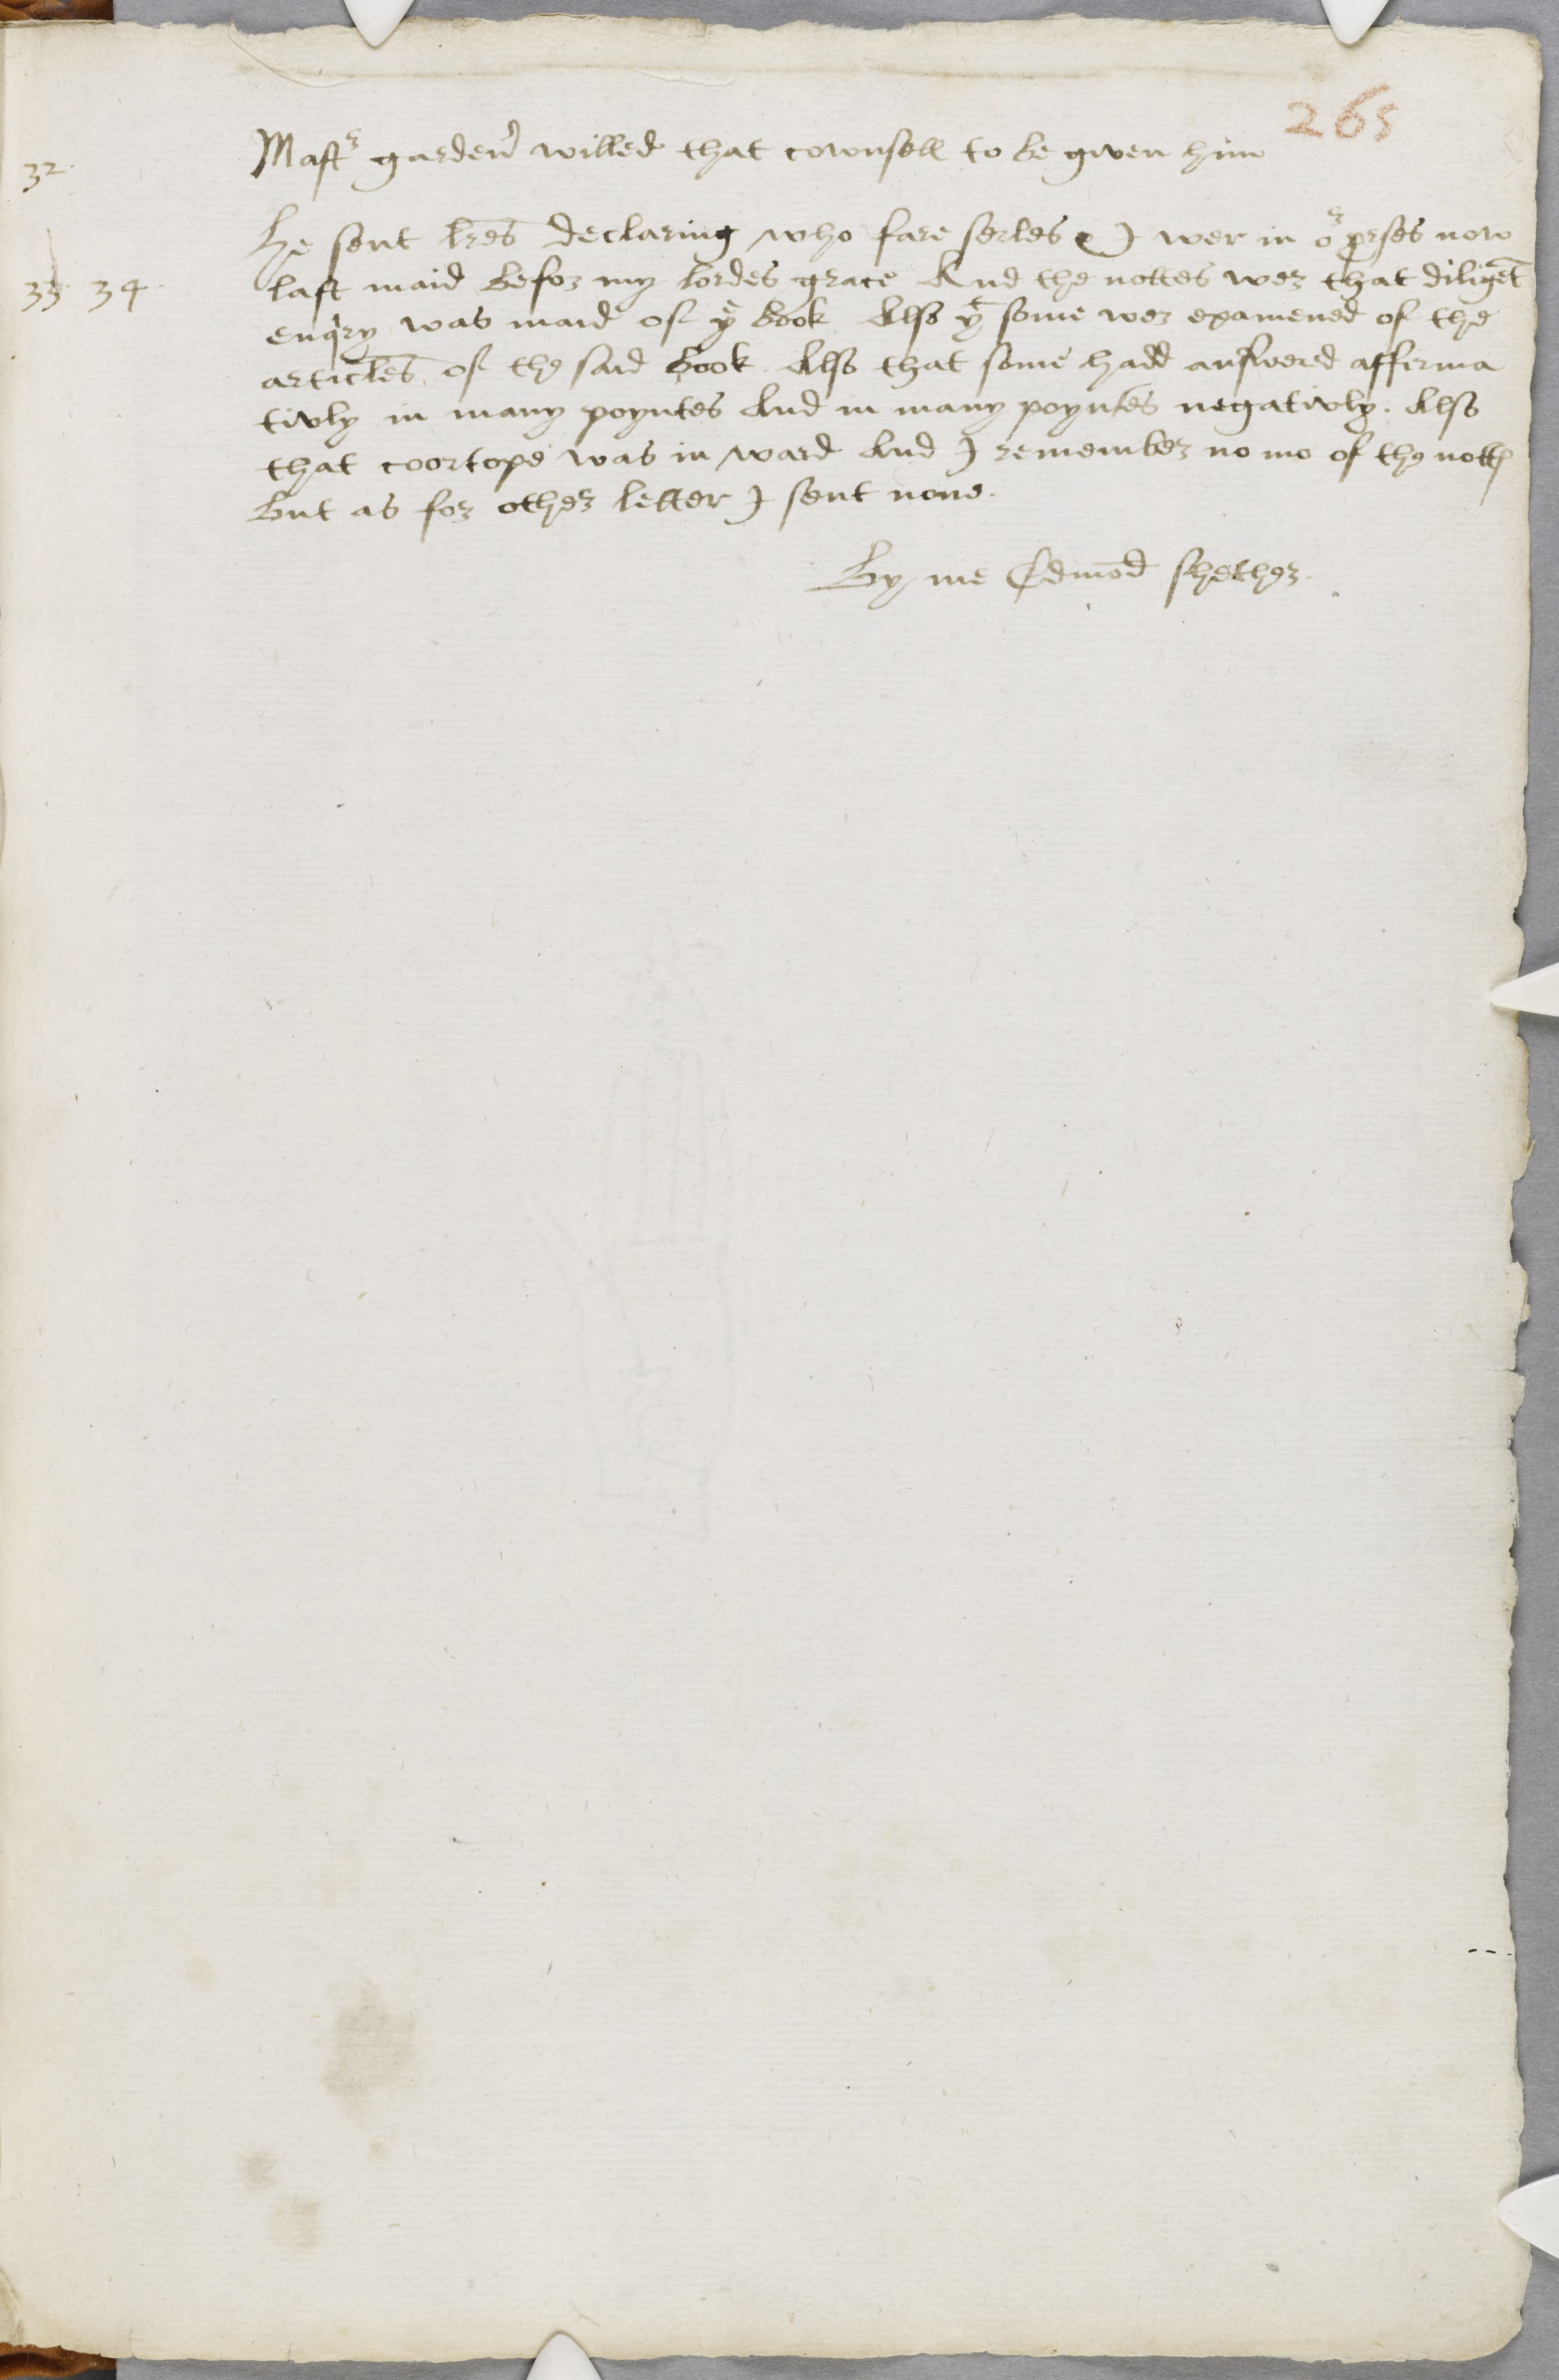 265
32
Mastr garden) willed that cownsell to be gyven him
he sent lres declaring who fare serles & I wer in or prses now
33 34
last maid befor my lordes grace And the nottes wer that diligēt
enqry was maid of ye book Also yt some wer examened of the
articles of the said book Also that some hadd answered afferma
tivly in many poyntes And in many poyntes negativly. Also
that coortope was in ward And I remember no mo of the nottes
but as for other letter I sent none.
By me Edmōd shether